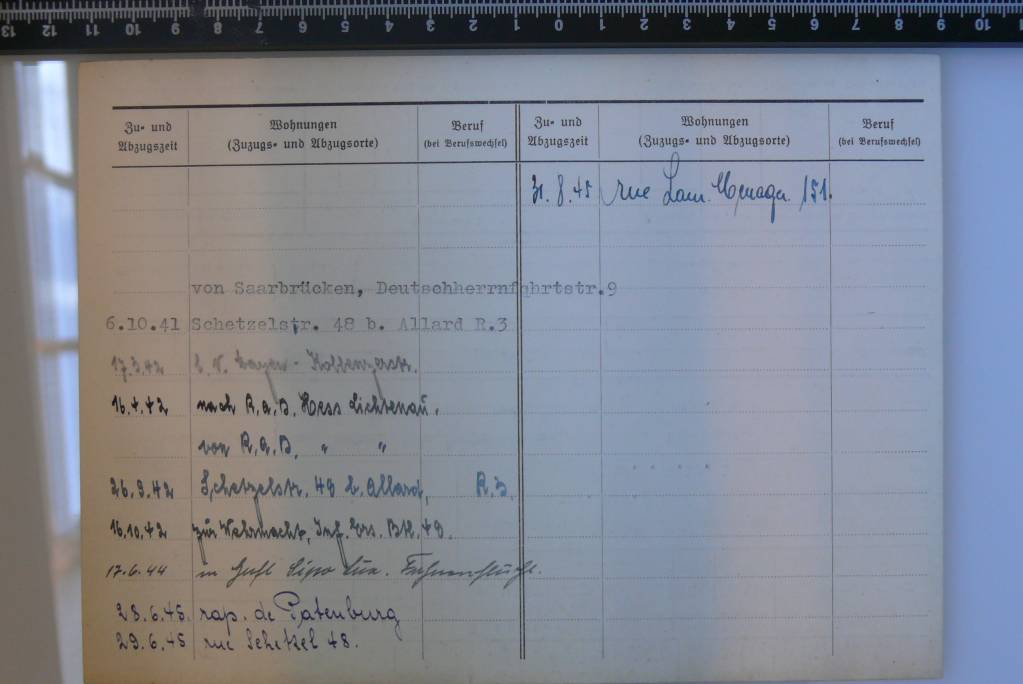 13 12 11 10 9 8 7 6 5 4 3 2 1 0 1 2 3 4 5 6 7 8 9 10
Zu- und Abzugszeit
Wohnungen (Zuzugs- und Abzugsorte)
Beruf (bei Berufswechsel)
Zu- und Abzugszeit
Wohnungen (Zuzugs- und Abzugsorte)
Beruf (bei Berufswechsel)
31.8.45 rue Lam. Menager 151.
von Saarbrücken, Deutschherrnfahrtstr.9
6.10.41 Schetzelstr. 48 b. Allard R.3
17.3.42 Koblenzerstr.
16.4.42 nach R.A.D. Hess Lichtenau.
von R.A.D. " "
26.9.42 Schetzelstr. 48 b. Allard, R.3.
16.10.42 zur Wehrmacht, Inf. Ers. Btl. 48.
17.6.44 in Haft Sipo Lux. Fahnenflucht.
28.6.45. rap. de Patenburg
29.6.45 rue Schetzel 48.